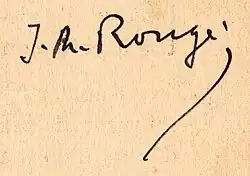 J. M. Rougé